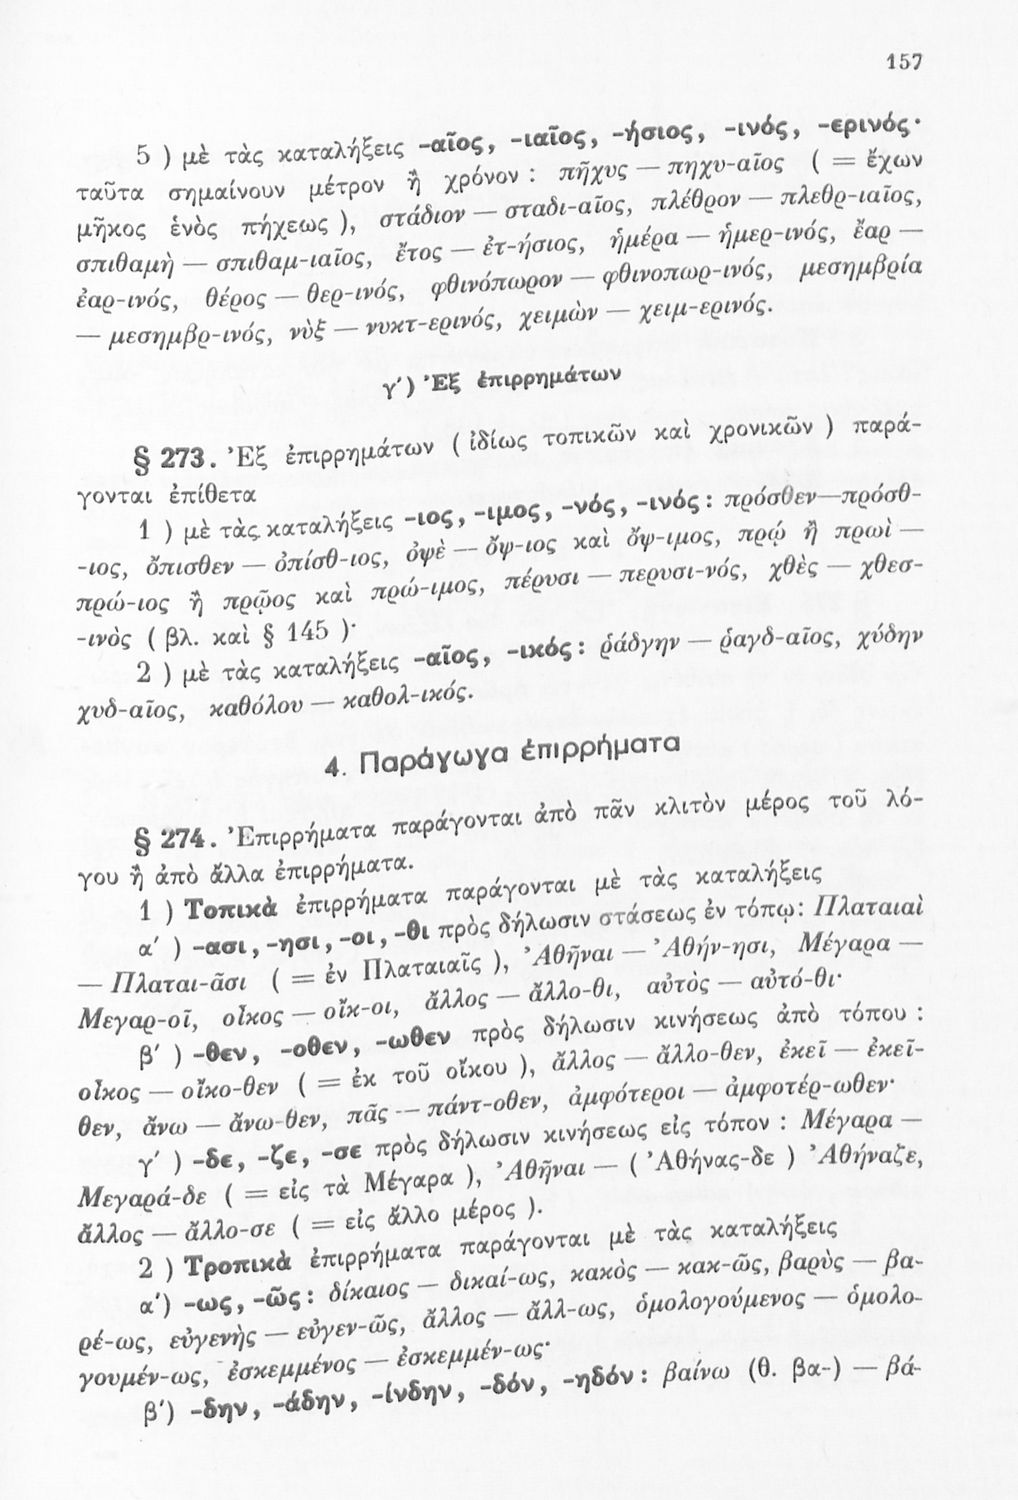 157
5 ) μὲ τὰς καταλήξεις -αῖος, -ιαῖος, -ήσιος, -ινός, -ερινός·
ταῦτα σημαίνουν μέτρον ἢ χρόνον : πῆχυς — πηχυ-αῖος ( = ἔχων
μῆκος ἑνὸς πήχεως ), στάδιον — σταδι-αῖος, πλέθρον — πλεθρ-ιαῖος,
σπιθαμὴ — σπιθαμ-ιαῖος, ἔτος — ἐτ-ήσιος, ἡμέρα — ἡμερ-ινός, ἔαρ —
ἐαρ-ινός, θέρος — θερ-ινός, φθινόπωρον — φθινοπωρ-ινός, μεσημβρία
— μεσημβρ-ινός, νὺξ — νυκτ-ερινός, χειμὼν — χειμ-ερινός.
γ΄) Ἐξ ἐπιρρημάτων
§ 273. Ἐξ ἐπιρρημάτων ( ἰδίως τοπικῶν καὶ χρονικῶν ) παρά-
γονται ἐπίθετα
1 ) μὲ τὰς καταλήξεις -ιος, -ιμος, -νός, -ινός : πρόσθεν—πρόσθ-
-ιος, ὄπισθεν — ὀπίσθ-ιος, ὀψὲ — ὄψ-ιος καὶ ὄψ-ιμος, πρῴ ἢ πρωὶ —
πρώ-ιος ἢ πρῷος καὶ πρώ-ιμος, πέρυσι — περυσι-νός, χθὲς — χθεσ-
-ινὸς ( βλ. καὶ § 145 )·
2 ) μὲ τὰς καταλήξεις -αῖος, -ικός : ῥάδγην — ῥαγδ-αῖος, χύδην
χυδ-αῖος, καθόλου — καθολ-ικός.
4. Παράγωγα ἐπιρρήματα
§ 274. Ἐπιρρήματα παράγονται ἀπὸ πᾶν κλιτὸν μέρος τοῦ λό-
γου ἢ ἀπὸ ἄλλα ἐπιρρήματα.
1 ) Τοπικὰ ἐπιρρήματα παράγονται μὲ τὰς καταλήξεις
α΄ ) -ασι, -ησι, -οι, -θι πρὸς δήλωσιν στάσεως ἐν τόπῳ: Πλαταιαὶ
— Πλαται-ᾶσι ( = ἐν Πλαταιαῖς ), Ἀθῆναι — Ἀθήν-ησι, Μέγαρα —
Μεγαρ-οῖ, οἶκος — οἴκ-οι, ἄλλος — ἄλλο-θι, αὐτὸς — αὐτό-θι·
β΄ ) -θεν, -οθεν, -ωθεν πρὸς δήλωσιν κινήσεως ἀπὸ τόπου :
οἶκος — οἴκο-θεν ( = ἐκ τοῦ οἴκου ), ἄλλος — ἄλλο-θεν, ἐκεῖ — ἐκεῖ-
θεν, ἄνω — ἄνω-θεν, πᾶς — πάντ-οθεν, ἀμφότεροι — ἀμφοτέρ-ωθεν·
γ΄ ) -δε, -ζε, -σε πρὸς δήλωσιν κινήσεως εἰς τόπον : Μέγαρα —
Μεγαρά-δε ( = εἰς τὰ Μέγαρα ), Ἀθῆναι — ( Ἀθήνας-δε ) Ἀθήναζε,
ἄλλος — ἄλλο-σε ( = εἰς ἄλλο μέρος ).
2 ) Τροπικὰ ἐπιρρήματα παράγονται μὲ τὰς καταλήξεις
α΄) -ως, -ῶς : δίκαιος — δικαί-ως, κακὸς — κακ-ῶς, βαρὺς — βα-
ρέ-ως, εὐγενὴς — εὐγεν-ῶς, ἄλλος — ἄλλ-ως, ὁμολογούμενος — ὁμολο-
γουμέν-ως, ἐσκεμμένος — ἐσκεμμέν-ως·
β΄) -δην, -άδην, -ίνδην, -δόν, -ηδόν : βαίνω (θ. βα-) — βά-